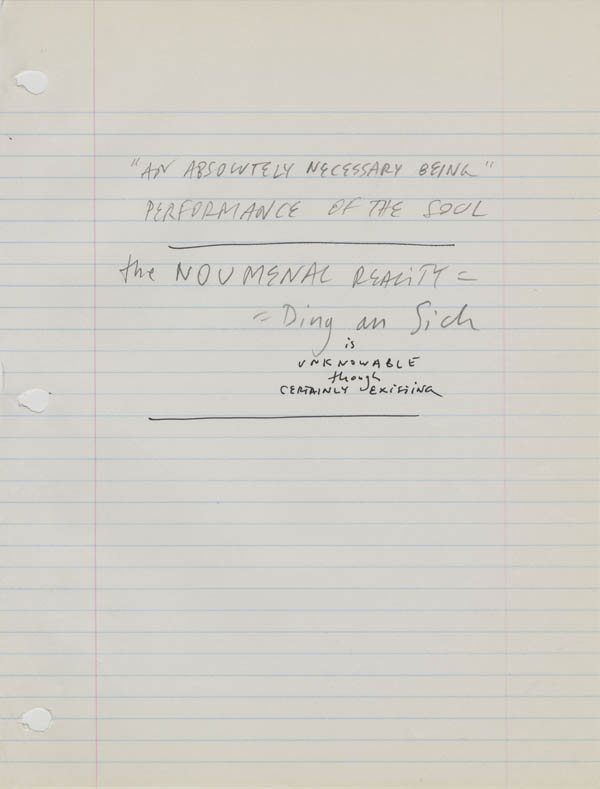 "AN ABSOLUTELY NECESSARY BEING"
PERFORMANCE OF THE SOUL
the NOUMENAL REALITY =
= Ding an Sich
is
UNKNOWABLE
though
CERTAINLY EXISTING